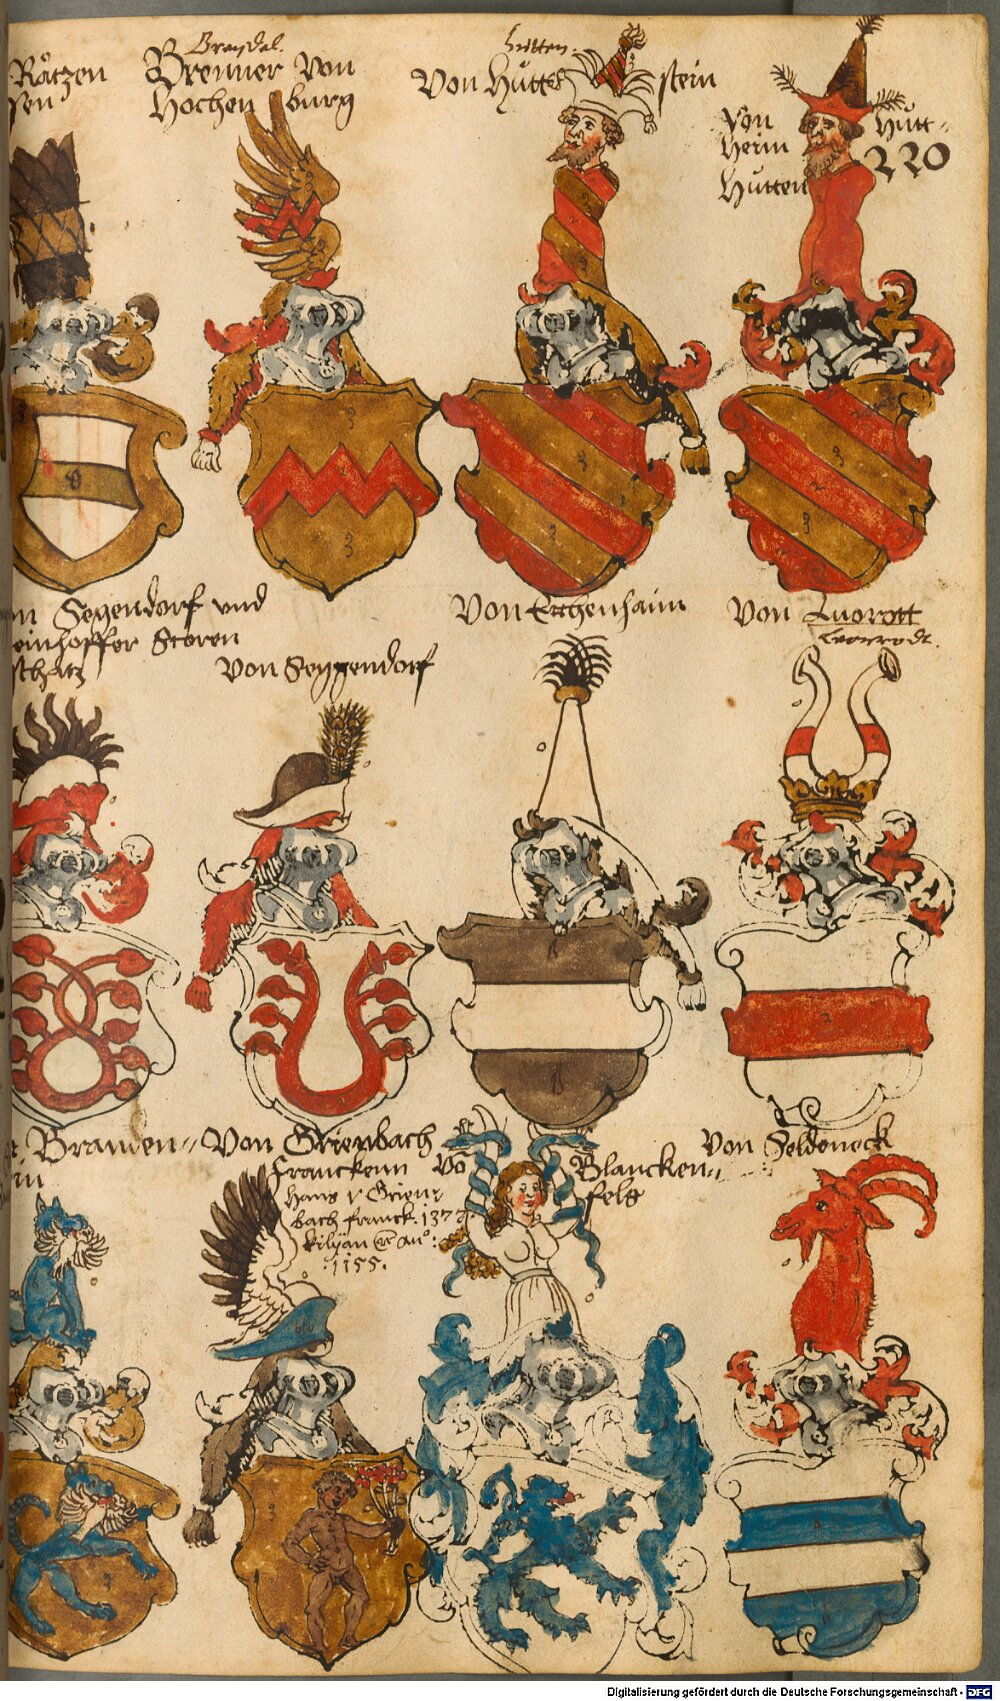 Rätzen
sen
Brendel.
Brenner Von
Hochen burg
hutten.
Von Hütte stein
Von Hütt=
Herin
Hutten
220
Segendorf und
einhoffer Storen
schatz
Von Seggendorf
Von
Von Luorott
Leonrodt.
Branden=
in
Von Grienbach
Franckenn
Hans v Grien
bach franck. 137
kilian Ano:
1155.
Vo Blancken=
fels
Von Seldeneck
Digitalisierung gefördert durch die Deutsche Forschungsgemeinschaft - DFG